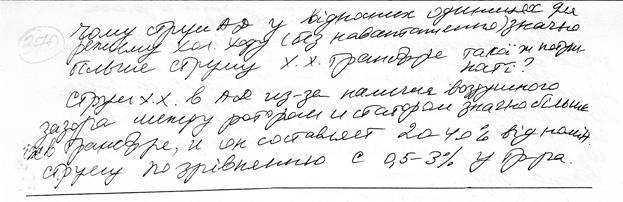 254
Чому струм АД у відносних одиницях для
режиму хол. ходу (без навантаження) значно
більше струму х.х. трансф-ра такої ж потуж
ності?
Струм х.х. в АД из-за наличия воздушного
зазора между ротором и статором значно більше
в трансф-ре, и он составляет 20-40% від номін.
струму по зрівненню с 0,5-3% у тр-ра.